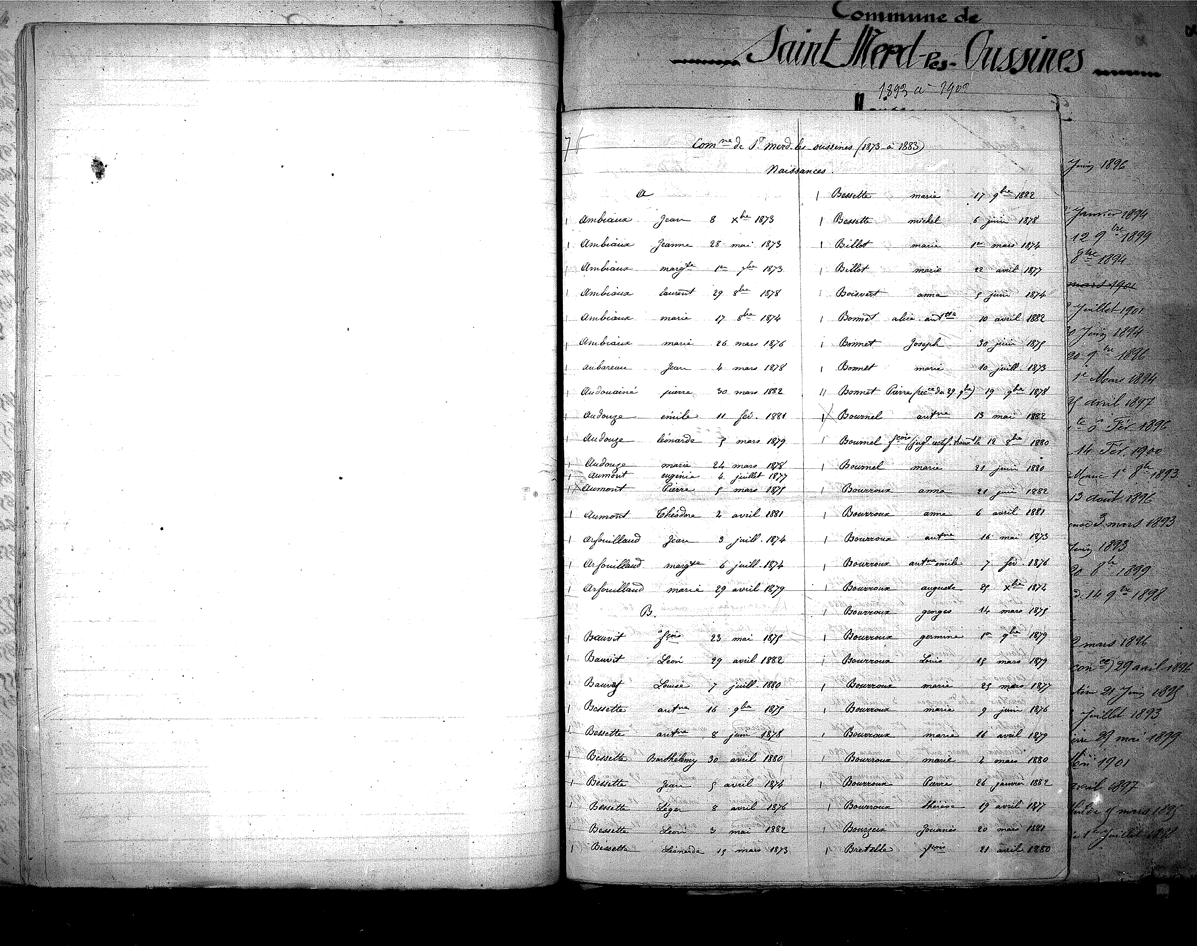 Commune de
Saint Merd-les-Oussines
1893 à 1902
Com.ne de St merd les oussines (1873 à 1883)
Naissances.
A
Ambiaux Jean 8 Xbre 1873
Ambiaux Jeanne 28 mai 1873
Ambiaux margte 1er 7bre 1873
Ambiaux laurent 29 8bre 1878
Ambiaux marie 17 8bre 1874
Ambiaux marie 26 mars 1876
aubareau Jean 4 mars 1878
Audouainé pierre 30 mars 1882
Audouze emile 11 fév. 1881
Audouze léonarde 5 mars 1879
Audouze marie 24 mars 1878
Aumont eugénie 4 juillet 1877
Aumont Pierre 5 mars 1875
Aumont Théodore 2 avril 1881
Arfouillaud Jean 3 juill. 1874
Arfouillaud margte 6 juill. 1874
Arfouillaud marie 29 avril 1879
B.
Bauvit fçois 23 mai 1875
Bauvit Léon 29 avril 1882
Bauvit Louise 7 juill. 1880
Bessette antne 16 9bre 1875
Bessette antne 8 juin 1878
Bessette Barthélemy 30 avril 1880
Bessette Jean 5 avril 1874
Bessette Léger 8 avril 1876
Bessette Léon 3 mai 1882
Bessette Léonarde 15 mars 1873
Bessette marie 17 9bre 1882
Bessette michel 6 juin 1878
Billot marie 1er mars 1874
Billot marie 22 avril 1877
Boisvert anna 5 juin 1874
Bonnet alice 10 avril 1882
Bonnet Joseph 30 juin 1875
Bonnet marie 10 juill 1873
Bonnet Pierre (rec. du 29 9bre) 19 9bre 1878
Bournel antne 13 mai 1882
Bournel fçois 12 8bre 1880
Bournel marie 21 juin 1880
Bourroux anna 21 juin 1882
Bourroux anne 6 avril 1881
Bourroux antne 16 mai 1873
Bourroux antne emile 7 fév 1876
Bourroux auguste 25 Xbre 1874
Bourroux georges 14 mars 1875
Bourroux germine 1er 9bre 1879
Bourroux Louis 15 mars 1879
Bourroux marie 25 mars 1877
Bourroux marie 9 juin 1876
Bourroux marie 16 avril 1879
Bourroux marie 2 mars 1880
Bourroux Pierre 26 janvier 1882
Bourroux thérèse 19 avril 1877
Bourzeix Jouanès 20 mars 1881
Bretelle fçois 21 avril 1880
Juin 1896
Janvier 1894
12 9bre 1899
8bre 1894
mars 1901
Juillet 1901
Juin 1894
20 9bre 1896
1er Mars 1894
25 avril 1897
6 Fév. 1896
14 Fév. 1900
13 août 1896
3 mars 1893
Juin 1893
20 8bre 1899
14 9bre 1898
2 mars 1896
29 avril 1896
21 Juin 1895
Juillet 1893
29 mai 1899
1901
avril 1897